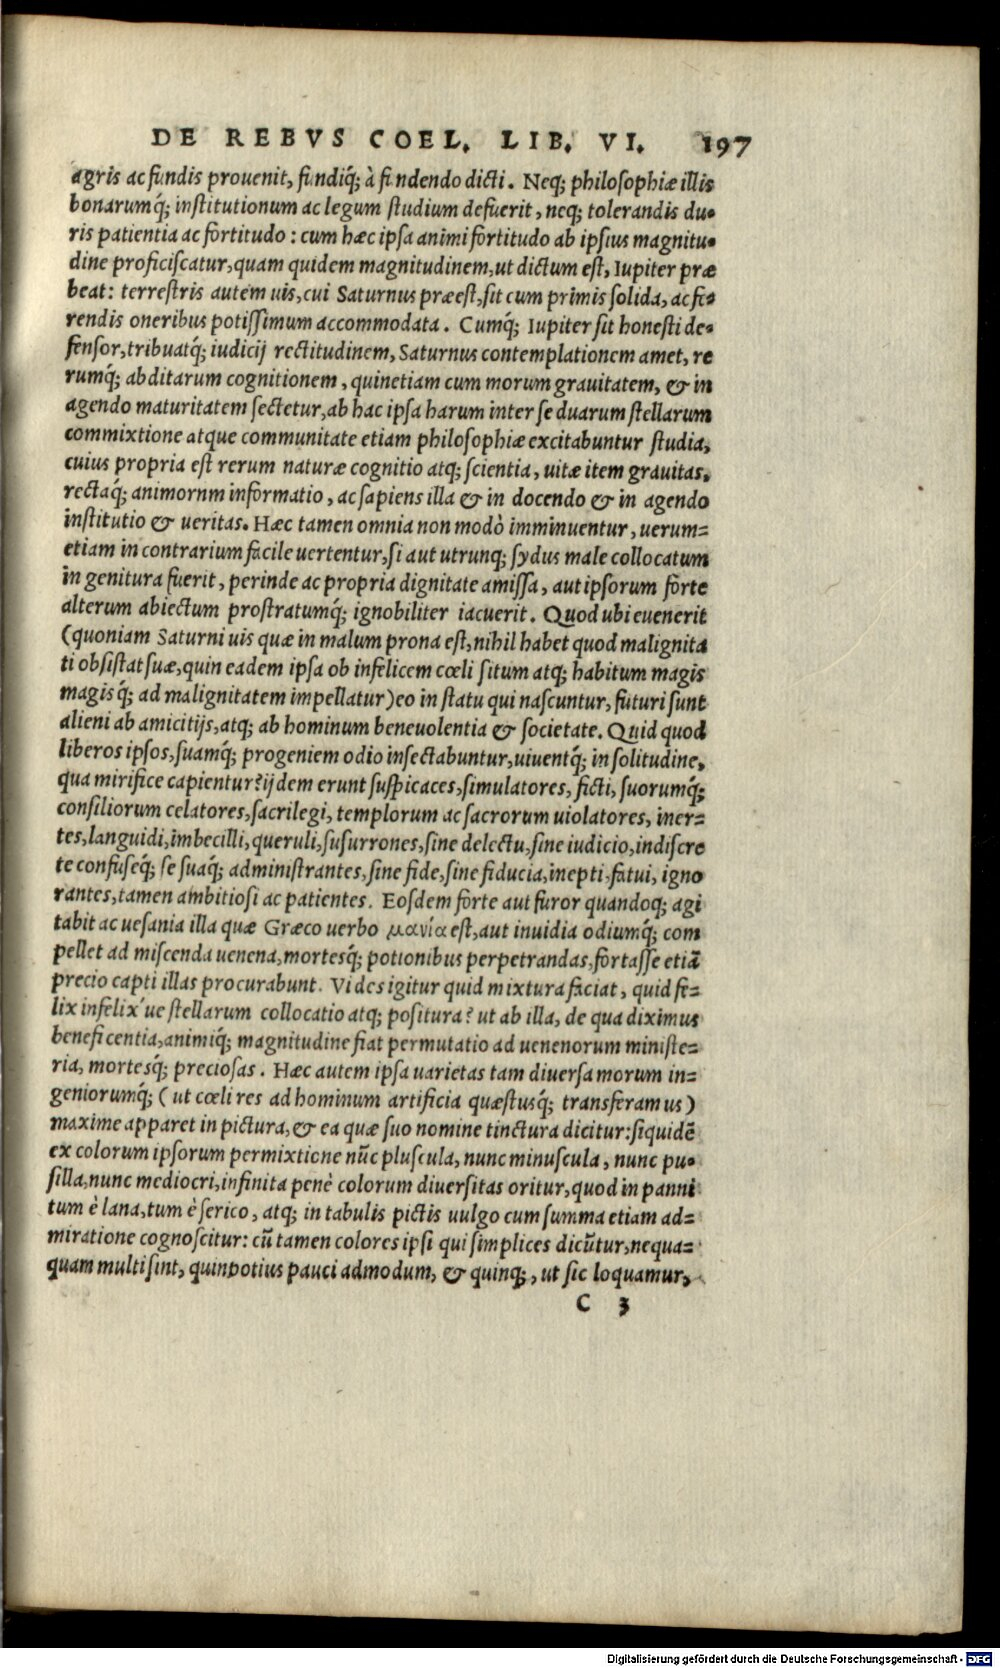 DE REBVS COEL. LIB. VI. 197
agris ac fundis prouenit, fundiq́; à findendo dicti. Neq; philosophiæ illis
bonarumq́; institutionum ac legum studium defuerit, neq; tolerandis du-
ris patientia ac fortitudo: cum hæc ipsa animi fortitudo ab ipsius magnitu-
dine proficiscatur, quam quidem magnitudinem, ut dictum est, Iupiter præ
beat: terrestris autem uis, cui Saturnus præest, sit cum primis solida, ac fe-
rendis oneribus potissimum accommodata. Cumq́; Iupiter sit honesti de-
fensor, tribuatq́; iudicij rectitudinem, Saturnus contemplationem amet, re
rumq́; abditarum cognitionem, quinetiam cum morum grauitatem, & in
agendo maturitatem sectetur, ab hac ipsa harum inter se duarum stellarum
commixtione atque communitate etiam philosophiæ excitabuntur studia,
cuius propria est rerum naturæ cognitio atq; scientia, uitæ item grauitas,
rectaq́; animornm informatio, ac sapiens illa & in docendo & in agendo
institutio & ueritas. Hæc tamen omnia non modò imminuentur, uerum=
etiam in contrarium facile uertentur, si aut utrunq; sydus male collocatum
in genitura fuerit, perinde ac propria dignitate amissa, aut ipsorum forte
alterum abiectum prostratumq́; ignobiliter iacuerit. Quod ubi euenerit
(quoniam Saturni uis quæ in malum prona est, nihil habet quod malignita
ti obsistat suæ, quin eadem ipsa ob infelicem cœli situm atq; habitum magis
magisq́; ad malignitatem impellatur) eo in statu qui nascuntur, futuri sunt
alieni ab amicitijs, atq; ab hominum beneuolentia & societate. Quid quod
liberos ipsos, suamq́; progeniem odio insectabuntur, uiuentq́; in solitudine,
qua mirifice capientur? ijdem erunt suspicaces, simulatores, ficti, suorumq́;
consiliorum celatores, sacrilegi, templorum ac sacrorum uiolatores, iner=
tes, languidi, imbecilli, queruli, susurrones, sine delectu, sine iudicio, indiscre
te confuseq́; se suaq́; administrantes, sine fide, sine fiducia, inepti, fatui, igno
rantes, tamen ambitiosi ac patientes. Eosdem forte aut furor quandoq; agi
tabit ac uesania illa quæ Græco uerbo μανία est, aut inuidia odiumq́; com
pellet ad miscenda uenena, mortesq́; potionibus perpetrandas, fortasse etiā
precio capti illas procurabunt. Vides igitur quid mixtura faciat, quid fe=
lix infelix´ue stellarum collocatio atq; positura? ut ab illa, de qua diximus
beneficentia, animiq́; magnitudine fiat permutatio ad uenenorum ministe=
ria, mortesq́; preciosas. Hæc autem ipsa uarietas tam diuersa morum in=
geniorumq́; (ut cœli res ad hominum artificia quæstusq́; transferamus)
maxime apparet in pictura, & ea quæ suo nomine tinctura dicitur: siquidē
ex colorum ipsorum permixtione nūc pluscula, nunc minuscula, nunc pu-
silla, nunc mediocri, infinita penè colorum diuersitas oritur, quod in panni
tum è lana, tum è serico, atq; in tabulis pictis uulgo cum summa etiam ad=
miratione cognoscitur: cū tamen colores ipsi qui simplices dicūtur, nequa=
quam multi sint, quinpotius pauci admodum, & quinq;, ut sic loquamur,
C 3
Digitalisierung gefördert durch die Deutsche Forschungsgemeinschaft - DFG